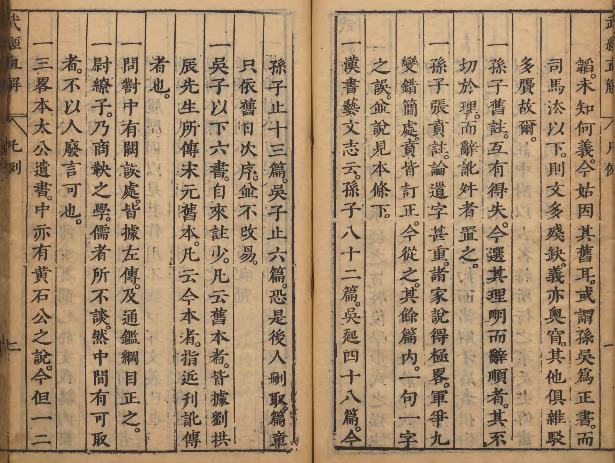 武經直解
凡例
一
韜。未知何義。今姑因其舊耳。或謂孫吳爲正書。而
司馬法以下。則文多殘缺。義亦奧窅。其他俱雜駁
多贋故爾。
一孫子舊註。互有得失。今選其理明而辭順者。其不
切於理。而辭訛舛者置之。
一孫子張賁註。論遣字甚重。諸家說得極畧。軍爭九
變錯簡處。賁皆訂正。今從之。其餘篇內。一句一字
之誤。並說見本條下。
一漢書藝文志云。孫子八十二篇。吳起四十八篇。今
孫子止十三篇。吳子止六篇。恐是後人刪取。篇章
只依舊目次序。並不改易。
一吳子以下六書。自來註少。凡云舊本者。皆據劉拱
辰先生所傳宋元舊本。凡云今本者。指近刋訛傳
者也。
一問對中有闕誤處。皆據左傳。及通鑑綱目正之。
一尉繚子。乃商鞅之學。儒者所不談。然中間有可取
者。不以人廢言可也。
一三畧本太公遺書。中亦有黃石公之說。今但一二
武經直解
凡例
二